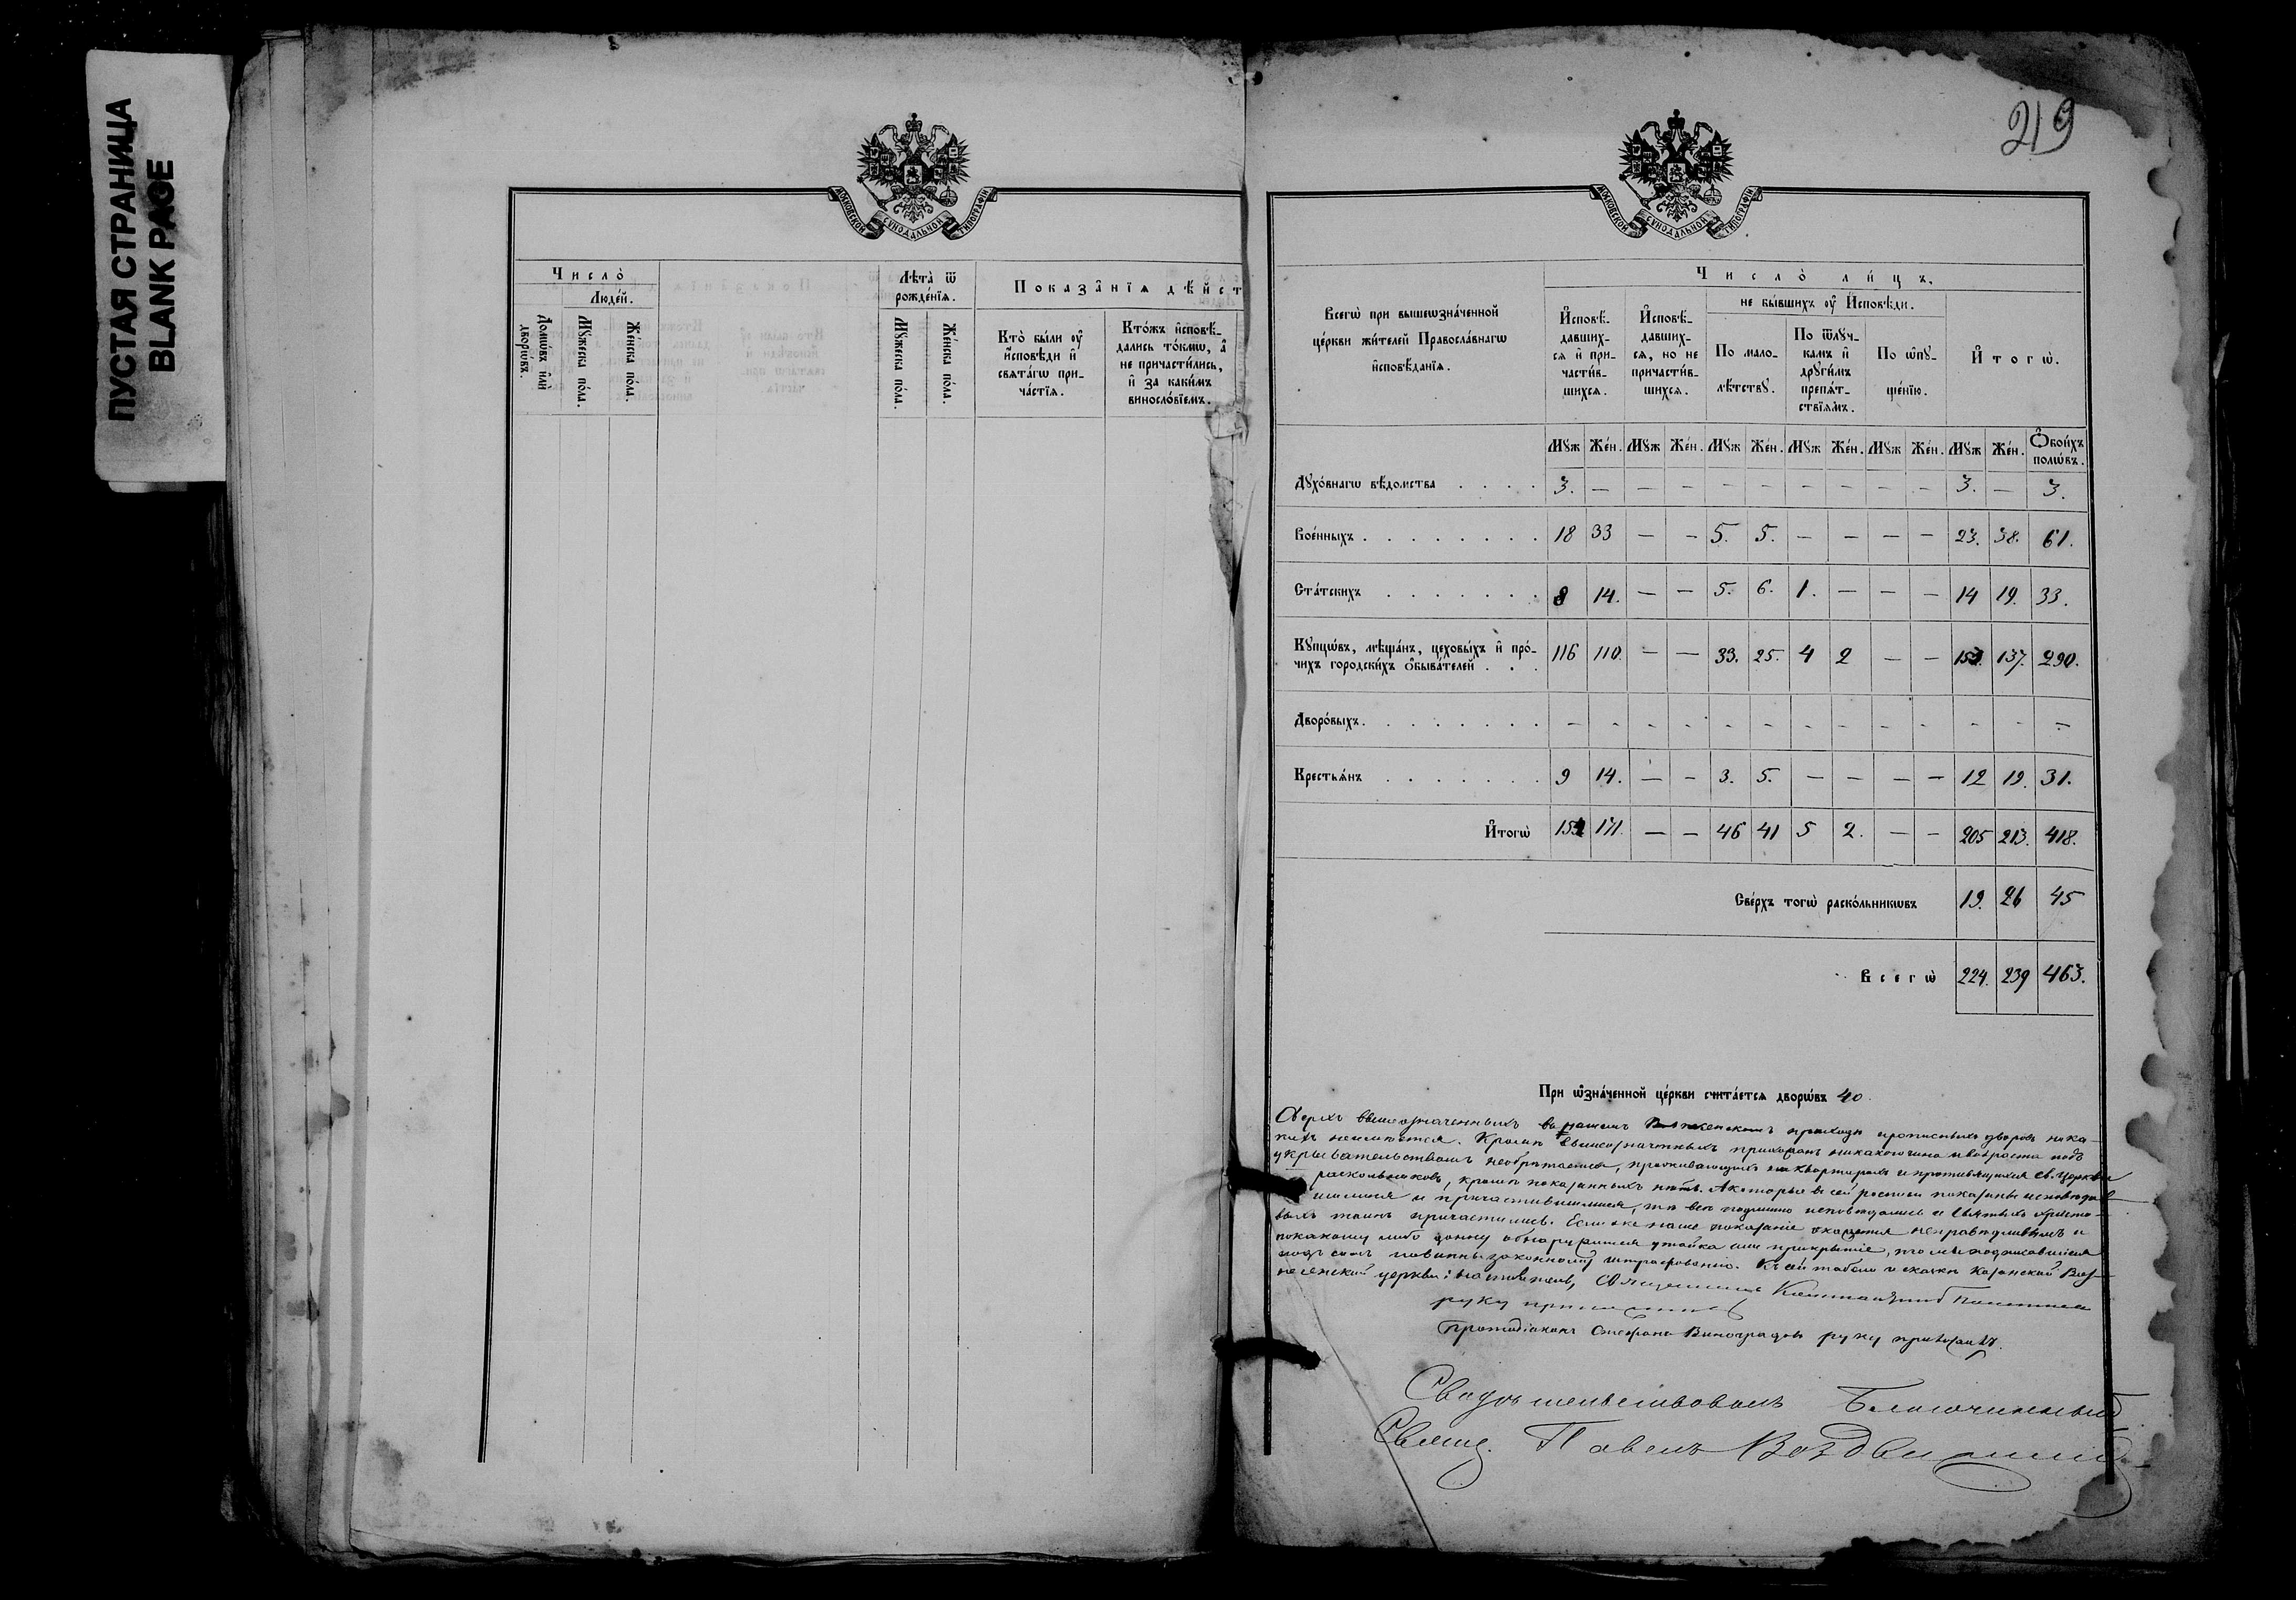 ПУСТАЯ СТРАНИЦА
BLANK PAGE
МОСКОВСКОЙ СѴНОДАЛЬНОЙ ТИПОГРАФІИ
Число̀
Людéй.
Домѡ́въ и҆лѝ дворѡ́въ.
Мꙋ́жеска по́ла.
Же́нска по́ла.
Лѣта̀ ѿ рожде́нїѧ.
Мꙋ́жеска по́ла.
Же́нска по́ла.
Показа̂нїѧ дѣ́йст
Кто̀ бы́ли ᲂу҆
и҆сповѣди и҆
свѧта́гѡ при-
ча́стїѧ.
Кто́жъ и҆сповѣ́-
дались то́кмѡ, а҆
не причасти́лись,
и҆ за каки́мъ
винословїемъ.
219
МОСКОВСКОЙ СѴНОДАЛЬНОЙ ТИПОГРАФІИ
Всегѡ̀ при вышеѡзна́ченной
це́ркви жи́телей Правосла́внагѡ
и҆сповѣ́данїѧ.
Число̀ ли́цъ.
И҆сповѣ́-
давших-
сѧ и҆ при-
части́в-
шихсѧ.
И҆сповѣ́-
давших-
сѧ, но не
причасти́в-
шихсѧ.
не бы́вшихъ ᲂу҆ И҆сповѣди.
По мало-
лѣ́тствꙋ.
По ѿлꙋ́ч-
камъ и҆
дрꙋги́мъ
препѧ́т-
ствїѧмъ.
По ѡ҆пꙋ-
ще́нїю.
И҆тогѡ̀.
Мꙋж Же́н. Мꙋж Же́н. Мꙋж Же́н. Мꙋж Же́н. Мꙋж Же́н. Мꙋж Же́н. Ѻ҆бои́хъ полѡ́въ.
Дꙋхо́внагѡ вѣ́домства . . . . 3. — — — — — — — — — 3. — 3.
Вое́нныхъ . . . . . . . . 18 33 — — 5. 5. — — — — 23. 38. 61.
Ста́тскихъ . . . . . . . 8 14. — — 5. 6. 1. — — — 14 19. 33.
Кꙋпцѡ́въ, мѣща́нъ, цеховы́хъ и҆ про́-
чихъ городски́хъ ѻ҆быва́телей . . . 116 110. — — 33. 25. 4 2 — — 153. 137. 290.
Дворо́выхъ. . . . . . . . — - - - - - - - - - - - —
Крестьѧ́нъ . . . . . . . 9 14. — — 3. 5. — — — — 12 19. 31.
И҆тогѡ̀ 154 171. — — 46 41 5 2. — — 205 213. 418.
Све́рхъ тогѡ̀ раско́льникѡвъ 19. 26 45
Всегѡ̀ 224. 239 463.
При ѡ҆зна́ченной це́ркви счита́етсѧ дворѡ́въ 40.
Сверхъ вышеозначенныхъ въ нашемъ приходѣ прописныхъ дворовъ ника-
кихъ неимѣется. Кромѣ вышеозначенныхъ прихожанъ никакого чина и возраста подъ
укрывательствомъ необрѣтается, проживающихъ на квартирахъ и противящихся св. Церкви
раскольниковъ, кромѣ показанныхъ нѣтъ. А которые въ сей росписи показаны исповѣдав-
шимися и причастившимися, тѣ всѣ подлинно исповѣдались и Святыхъ Христо-
выхъ таинъ причастились. Если же наше показаніе окажется несправедливымъ и
покакому либо доносу обнаружится утайка или прикрытіе, то мы подписавшіеся
подъ симъ повинны законному штрафованію. Къ сей табели и сказкѣ Казанской Воз-
несенской церкви: настоятель, Священникъ Константинъ
руку приложилъ
Протодіаконъ Стефанъ Виноградовъ руку приложилъ.
Свидѣтельствовалъ Благочинный
Свящ. Павелъ Воздвиженскій